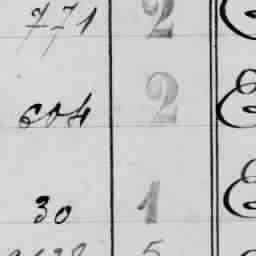 771 2
604 2 E
30 1 E
5